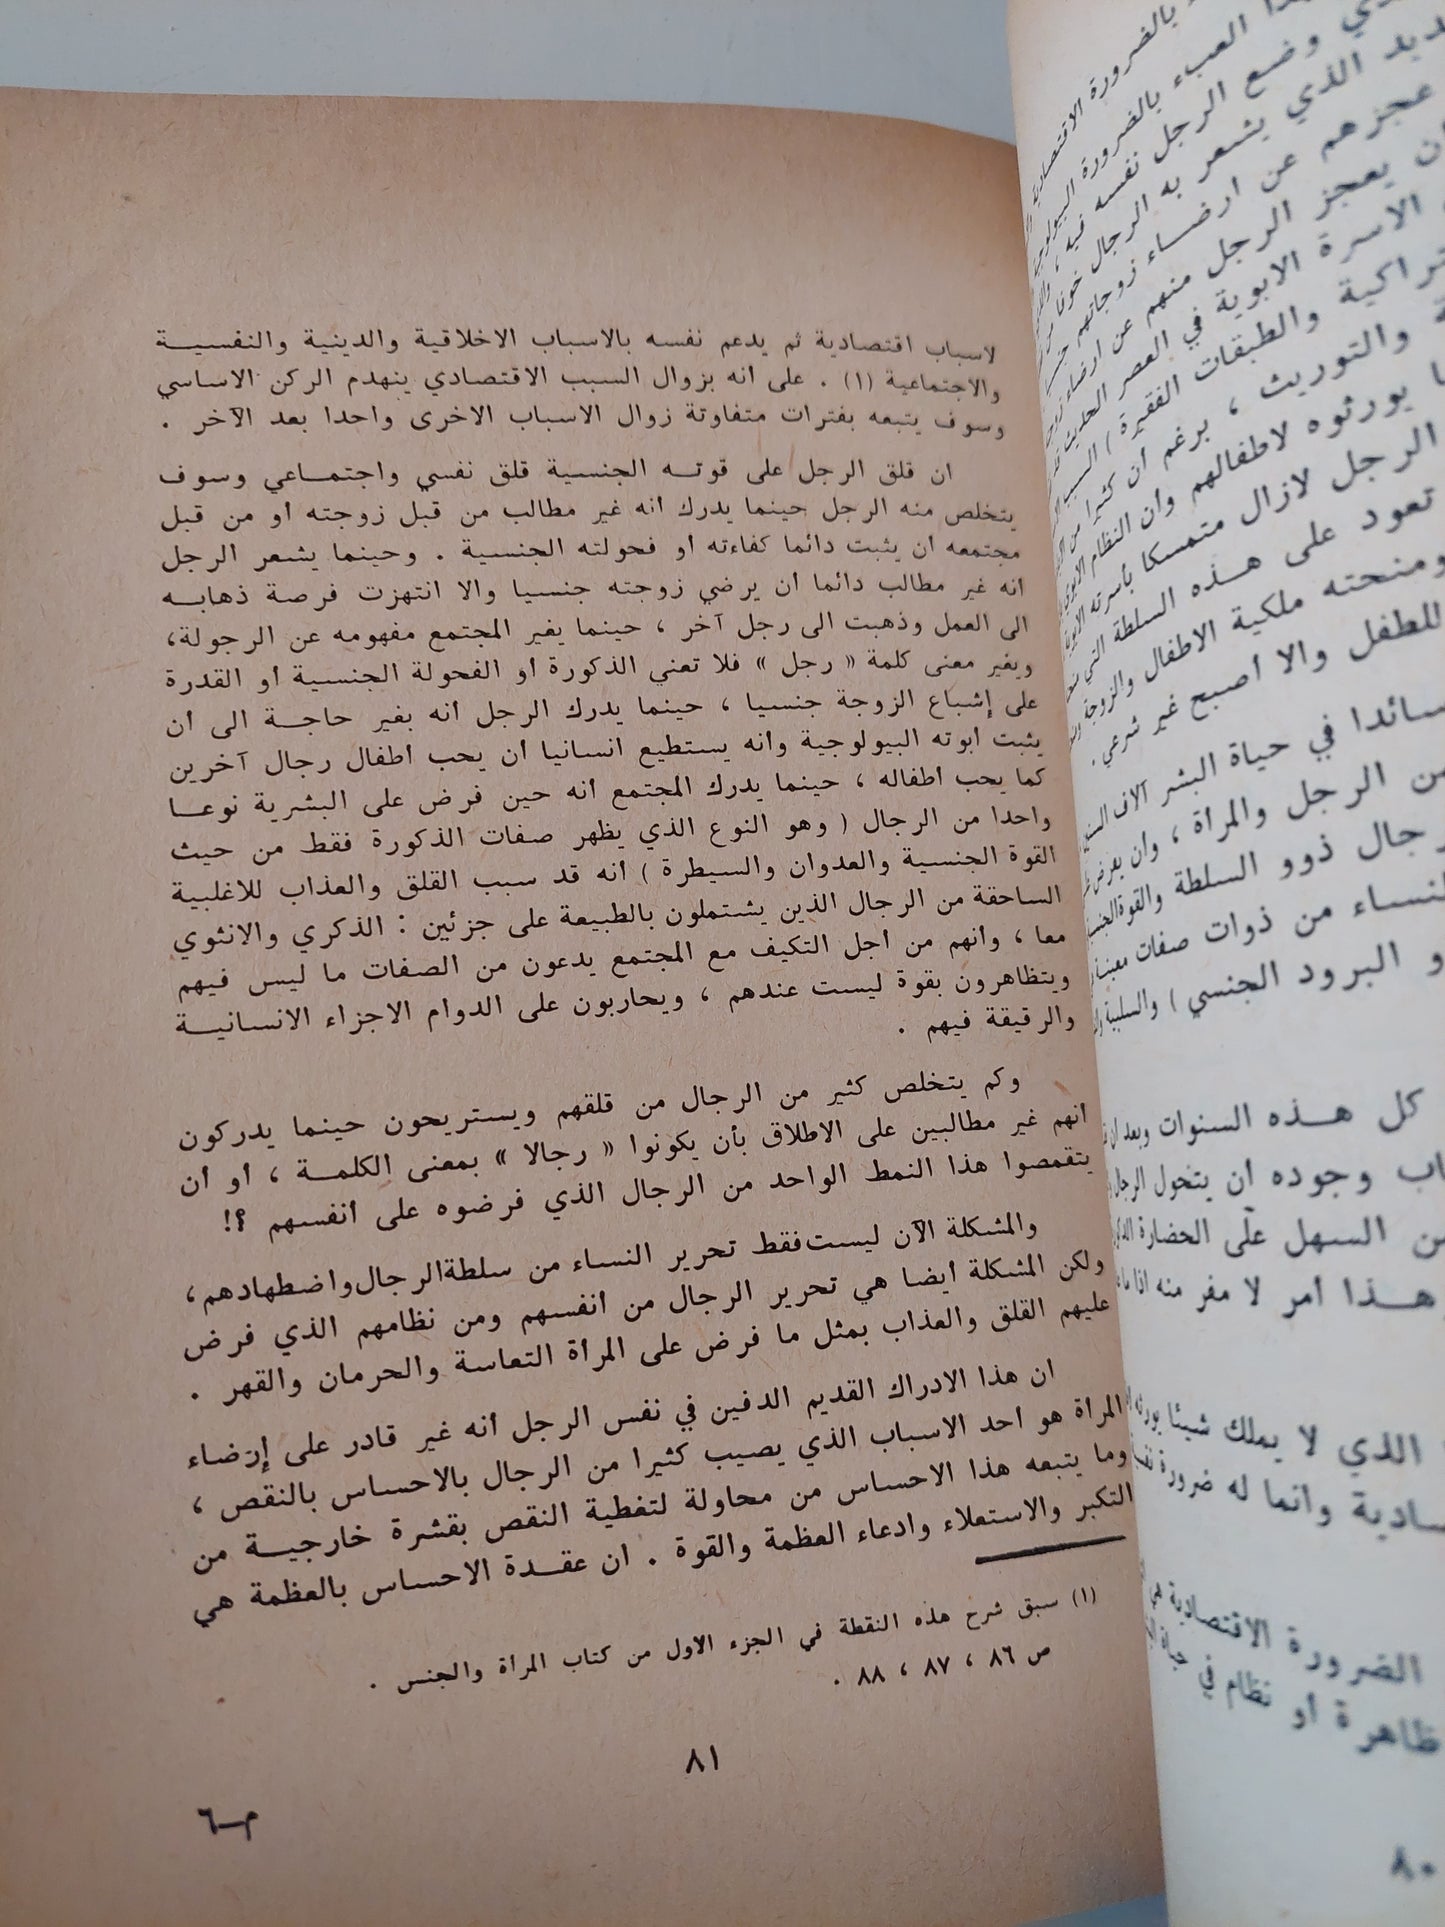 لاسباب اقتصادية ثم يدعم نفسه بالاسباب الاخلاقية والدينية والنفسيـــة
والاجتماعية (١) . على انه بزوال السبب الاقتصادي ينهدم الركن الاساسي
وسوف يتبعه بفترات متفاوتة زوال الاسباب الاخرى واحدا بعد الآخر .
ان قلق الرجل على قوتـــه الجنسية قلق نفسي واجتمـاعي وسوف
يتخلص منه الرجل حينما يدرك انه غير مطالب من قبل زوجته او من قبل
مجتمعه ان يثبت دائما كفاءته او فحولته الجنسية . وحينما يشعر الرجل
انه غير مطالب دائما ان يرضي زوجته جنسيا والا انتهزت فرصة ذهابـــه
الى العمل وذهبت الى رجل آخر ، حينما يغير المجتمع مفهومه عن الرجولة،
ويغير معنى كلمة « رجل » فلا تعني الذكورة أو الفحولة الجنسية أو القدرة
على إشباع الزوجة جنسيا ، حينما يدرك الرجل أنه بغير حاجـــة الى أن
يثبت ابوته البيولوجية وانه يستطيع انسانيا أن يحب اطفال رجال آخرين
كما يحب اطفاله ، حينما يدرك المجتمع أنه حين فرض على البشرية نوعـــا
واحدا من الرجال ( وهو النوع الذي يظهر صفات الذكورة فقط من حيث
القوة الجنسية والعدوان والسيطرة ) انه قد سبب القلق والعذاب للاغلبية
الساحقة من الرجال الذين يشتملون بالطبيعة على جزئين : الذكري والانثوي
معا ، وانهم من أجل التكيف مع المجتمع يدعون من الصفات ما ليس فيهم
ويتظاهرون بقوة ليست عندهم ، ويحاربون على الدوام الاجزاء الانسانيـــة
والرقيقة فيهم .
وكم يتخلص كثير من الرجال من قلقهم ويستريحون حينما يدركون
انهم غير مطالبين على الاطلاق بأن يكونوا « رجالا » بمعنى الكلمـــة ، أو أن
يتقمصوا هذا النمط الواحد من الرجال الذي فرضوه على أنفسهم ؟!
والمشكلة الآن ليست فقط تحرير النساء من سلطة الرجال واضطهادهم،
ولكن المشكلة ايضا هي تحرير الرجال من انفسهم ومن نظامهم الذي فرض
عليهم القلق والعذاب بمثل ما فرض على المرأة التعاسة والحرمان والقهر .
ان هذا الادراك القديم الدفين في نفس الرجل أنه غير قادر على إرضاء
المرأة هو احد الاسباب الذي يصيب كثيرا من الرجال بالاحساس بالنقص ،
وما يتبعه هذا الاحساس من محاولة لتغطية النقص بقشرة خارجيـــة من
التكبر والاستعلاء وادعاء العظمة والقوة . ان عقـــدة الاحساس بالعظمة هي
(١) سبق شرح هذه النقطة في الجزء الاول من كتاب المرأة والجنس .
ص ٨٦ ، ٨٧ ، ٨٨ .
٨١
م—٦
بالضرورة الاقتصادية
العبء بالضرورة
وضع الرجل نفسه فيه
الذي يشعر به الرجال خوفا
عجزهم عن ارضـــاء زوجاتهم
يعجز الرجل منهم عن ارضاء
الاسرة الابوية في العصر الحديث
والطبقات الفقيرة )
والتوريث ، برغم أن كثيرا من
يورثوه لاطفالهم وان النظام الابوي
الرجل لازال متمسكا بأسرته
تعود على هـــذه السلطة التي
ومنحته ملكية الاطفال والزوجة
للطفل والا أصبح غير شرعي .
سائدا في حياة البشر آلاف
من الرجل والمرأة ، وان يعرض
ذوو السلطة والقوة
من ذوات صفات
البرود الجنسي ) والسلبية
كل هـــذه السنوات وبعد أن
وجوده أن يتحول
من السهل على الحضارة
هـــذا أمر لا مفر منه اذا
الذي لا يملك شيئا
وانما له ضرورة
الضرورة الاقتصادية هي
ظاهرة أو نظام في حياة
٨٠